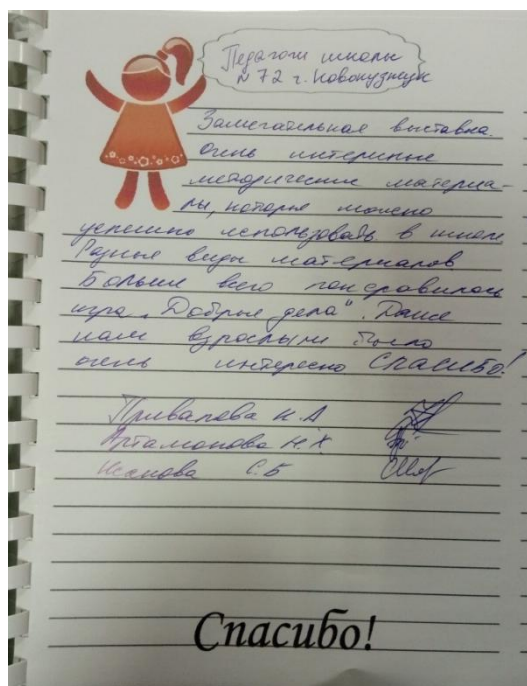 Педагоги школы
№72 г. Новокузнецк
Замечательная выставка.
Очень интересные
методические материа-
лы, которые можно
успешно использовать в школе
Разные виды материалов
Больше всего понравилась
игра „Добрые дела". Даже
нам взрослым было
очень интересно Спасибо!
Привалова Н.А
Артамонова Н.Х
С.Б
Спасибо!